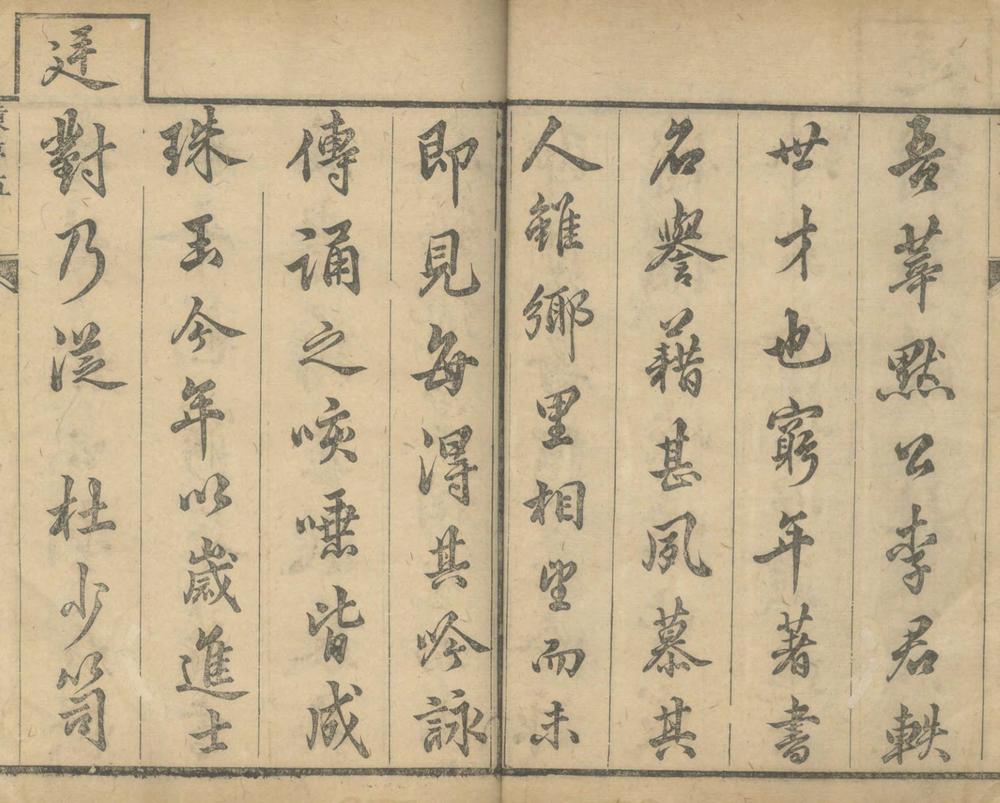 吾莘默公李君軼
世才也窮年著書
名譽藉甚夙慕其
人雖鄉里相望而未
即見每得其吟詠
傳誦之咳唾皆成
珠玉今年以歲進士
廷
對乃從杜少司